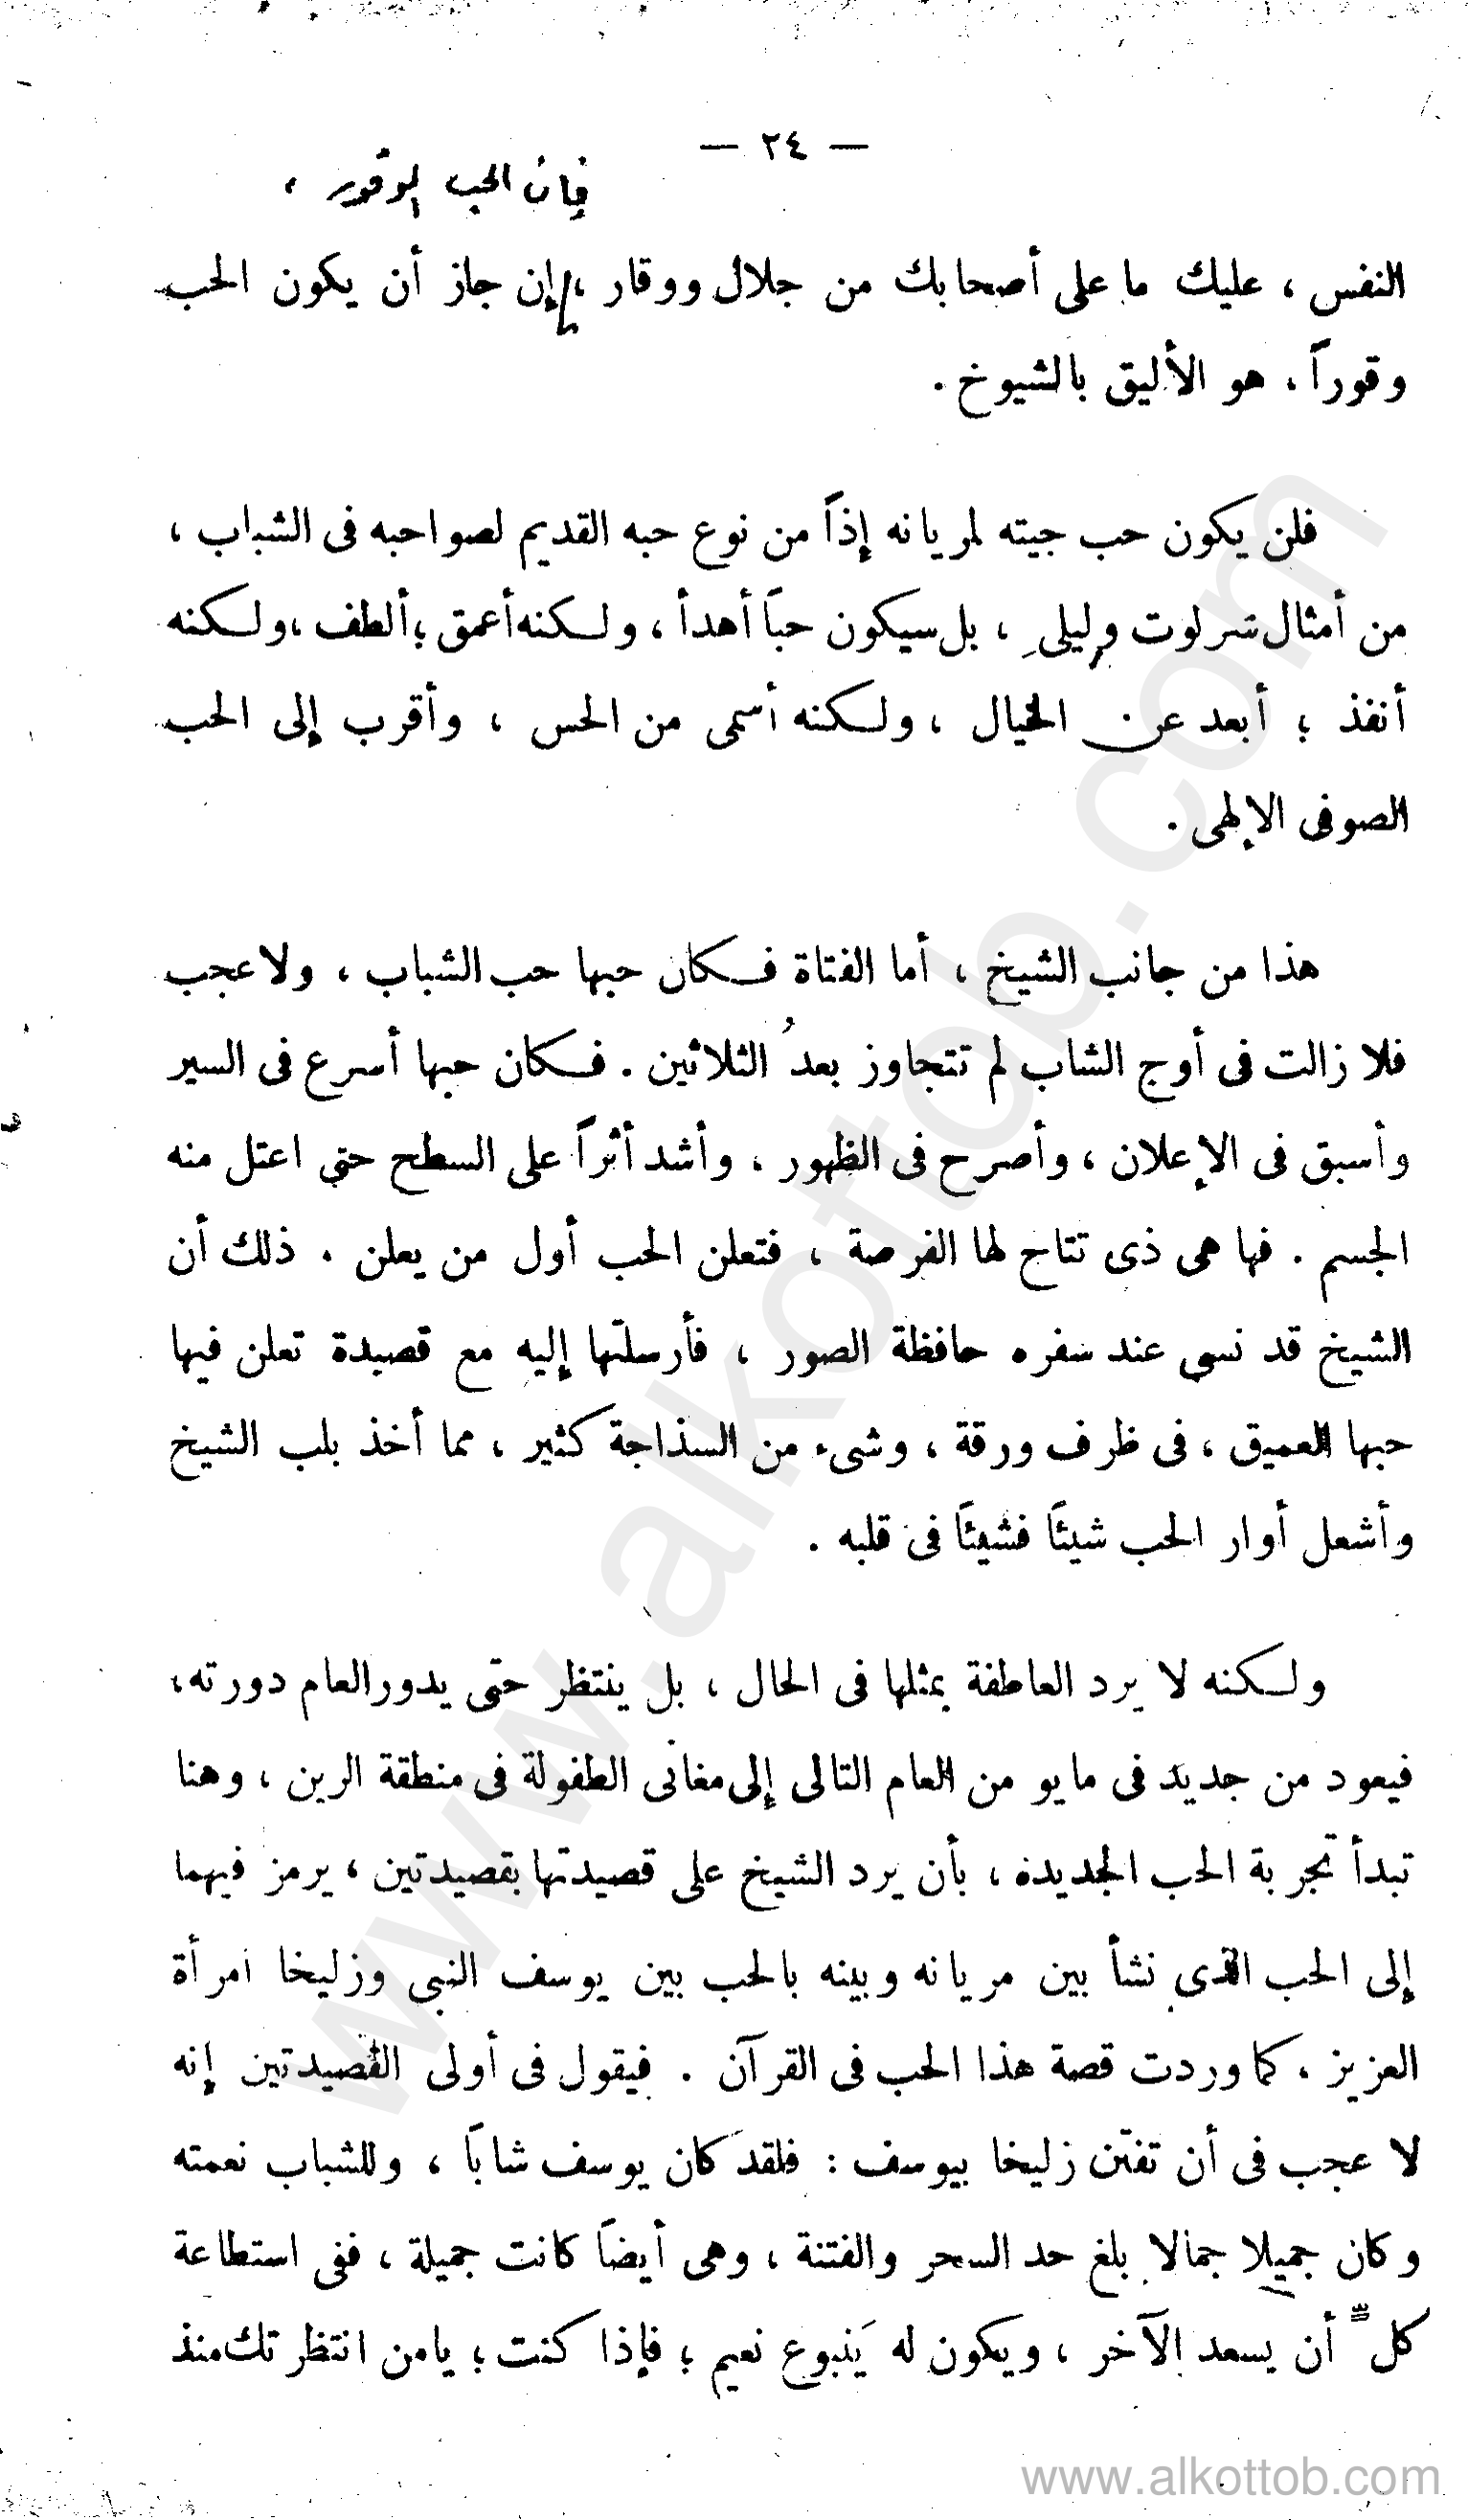 — ٢٤ —
فإن الحب الوقور ،
النفس ، عليك ما على أصحابك من جلال ووقار ، إن جاز أن يكون الحب
وقوراً ، هو الأليق بالشيوخ .
فلن يكون حب جيته لمريانه إذاً من نوع حبه القديم لصواحبه فى الشباب ،
من أمثال شرلوت وليلى ، بل سيكون حبًا أهدأ ، ولكنه أعمق ؛ ألطف ، ولكنه
أنفذ ؛ أبعد عن الخيال ، ولكنه أسمى من الحس ، وأقرب إلى الحب
الصوفى الإلهى .
هذا من جانب الشيخ ، أما الفتاة فكان حبها حب الشباب ، ولا عجب
فلا زالت فى أوج الشاب لم تتجاوز بعدُ الثلاثين . فكان حبها أسرع فى السير
وأسبق فى الإعلان ، وأصرح فى الظهور ، وأشد أثراً على السطح حتى اعتل منه
الجسم . فها هى ذى تتاح لها الفرصة ، فتعلن الحب أول من يعلن . ذلك أن
الشيخ قد نسى عند سفره حافظة الصور ، فأرسلتها إليه مع قصيدة تعلن فيها
حبها العميق ، فى ظرف ورقة ، وشىء من السذاجة كثير ، مما أخذ بلب الشيخ
وأشعل أوار الحب شيئًا فشيئًا فى قلبه .
ولكنه لا يرد العاطفة بمثلها فى الحال ، بل ينتظر حتى يدور العام دورته ،
فيعود من جديد فى مايو من العام التالى إلى مغانى الطفولة فى منطقة الرين ، وهنا
تبدأ تجربة الحب الجديدة ، بأن يرد الشيخ على قصيدتها بقصيدتين ، يرمز فيهما
إلى الحب الذى نشأ بين مريانه وبينه بالحب بين يوسف النبى وزليخا امرأة
العزيز ، كما وردت قصة هذا الحب فى القرآن . فيقول فى أولى القصيدتين إنه
لا عجب فى أن تفتن زليخا بيوسف : فلقد كان يوسف شابًا ، وللشباب نعمته
وكان جميلا جمالا بلغ حد السحر والفتنة ، وهى أيضًا كانت جميلة ، ففى استطاعة
كلٍّ أن يسعد الآخر ، ويكون له يَنبوع نعيم ؛ فإذا كنت ؛ يا من انتظرتك منذ
www.alkottob.com
www.alkottob.com